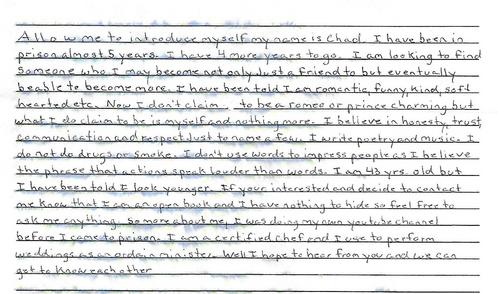 Allow me to introduce myself my name is Chad. I have been in
prison almost 5 years. I have 4 more years to go. I am looking to find
someone who I may become not only just a friend to but eventually
beable to become more. I have been told I am romantic, funny, kind, soft
hearted etc. Now I don't claim to be a romeo or prince charming but
what I do claim to be is myself and nothing more. I believe in honesty, trust,
communication and respect just to name a few. I write poetry and music. I
do not do drugs or smoke. I don't use words to impress people as I believe
the phrase that actions speak louder than words. I am 43 yrs. old but
I have been told I look younger. If your interested and decide to contact
me know that I am an open book and I have nothing to hide so feel free to
ask me anything. So more about me, I was doing my own youtube channel
before I came to prison. I am a certified chef and I use to perform
weddings as an ordain minister. Well I hope to hear from you and we can
get to know each other